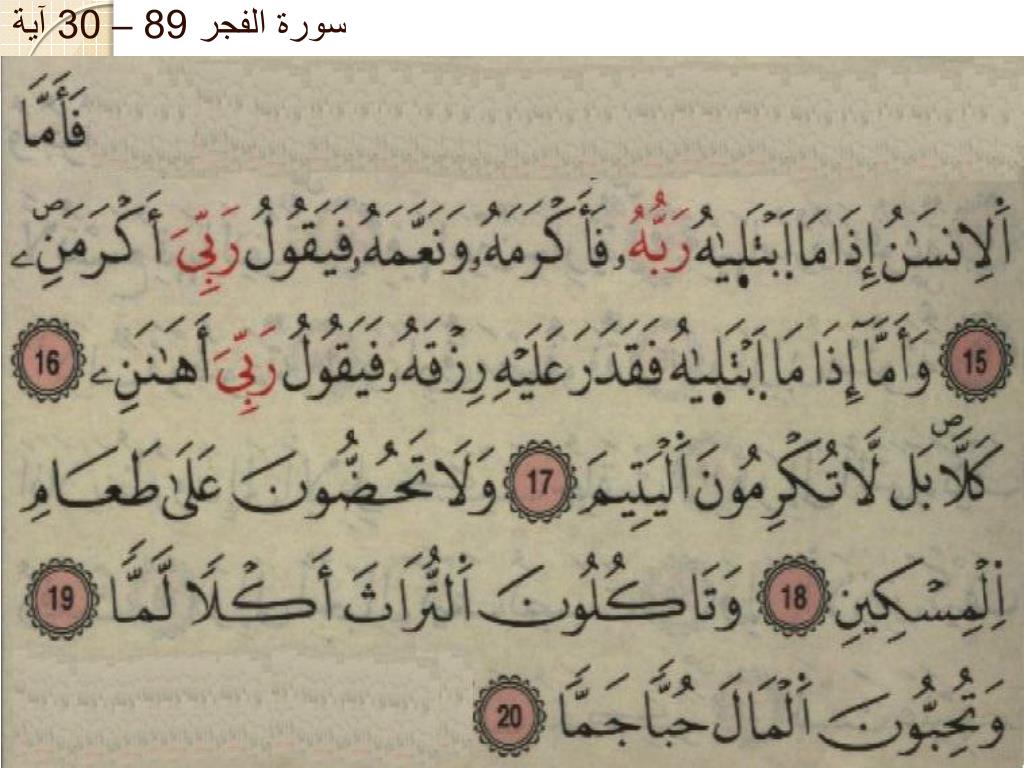 سورة الفجر 89 – 30 آية
فَأَمَّا
اَ۬لِانسَٰنُ إِذَا مَا اَ۪بْتَل۪يٰهُ رَبُّهُۥ فَأَكْرَمَهُۥ وَنَعَّمَهُۥ فَيَقُولُ رَبِّيَ أَكْرَمَنِۦ
15 وَأَمَّآ إِذَا مَا اَ۪بْتَل۪يٰهُ فَقَدَرَ عَلَيْهِ رِزْقَهُۥ فَيَقُولُ رَبِّيَ أَهَٰنَنِۦ 16
كَلَّاۖ بَل لَّا تُكْرِمُونَ اَ۬لْيَتِيمَ 17 وَلَا تَحُضُّونَ عَلَىٰ طَعَامِ
اِ۬لْمِسْكِينِ 18 وَتَاكُلُونَ اَ۬لتُّرَاثَ أَكْلًا لَّمًّا 19
وَتُحِبُّونَ اَ۬لْمَالَ حُبًّا جَمًّا 20